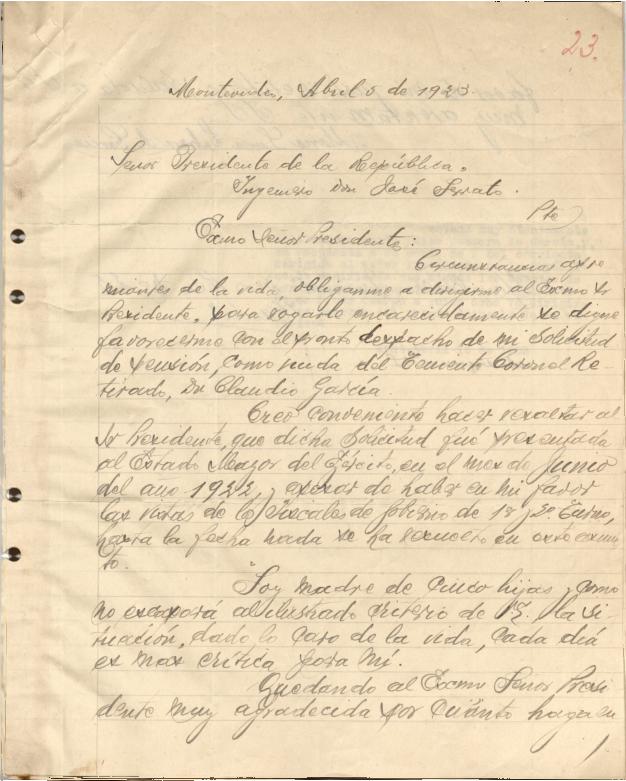 23.
Montevideo, Abril 5 de 1923.
Señor Presidente de la República.
Ingeniero Don José Serrato.
Pte
Exmo Señor Presidente:
Circunstancias apre
miantes de la vida, obliganme a dirigirme al Exmo Sr
Presidente, para rogarle encarecidamente se digne
favorecerme con el pronto despacho de mi solicitud
de pensión, como viuda del Teniente Coronel Re-
tirado, Dn Claudio García.
Creo conveniente hacer resaltar al
Sr Presidente, que dicha solicitud fué presentada
al Estado Mayor del Ejército, en el mes de Junio
del año 1922, y apesar de haber en mi favor
las vistas de los Fiscales de Gobierno de 1º y 2º Turno,
hasta la fecha nada se ha resuelto en este asun
to.
Soy madre de cinco hijas y como
no escapará al ilustrado criterio de V.E. la si-
tuación, dado lo caro de la vida, cada día
es mas crítica para mí.
Quedando al Exmo Señor Presi
dente muy agradecida por cuanto haga en